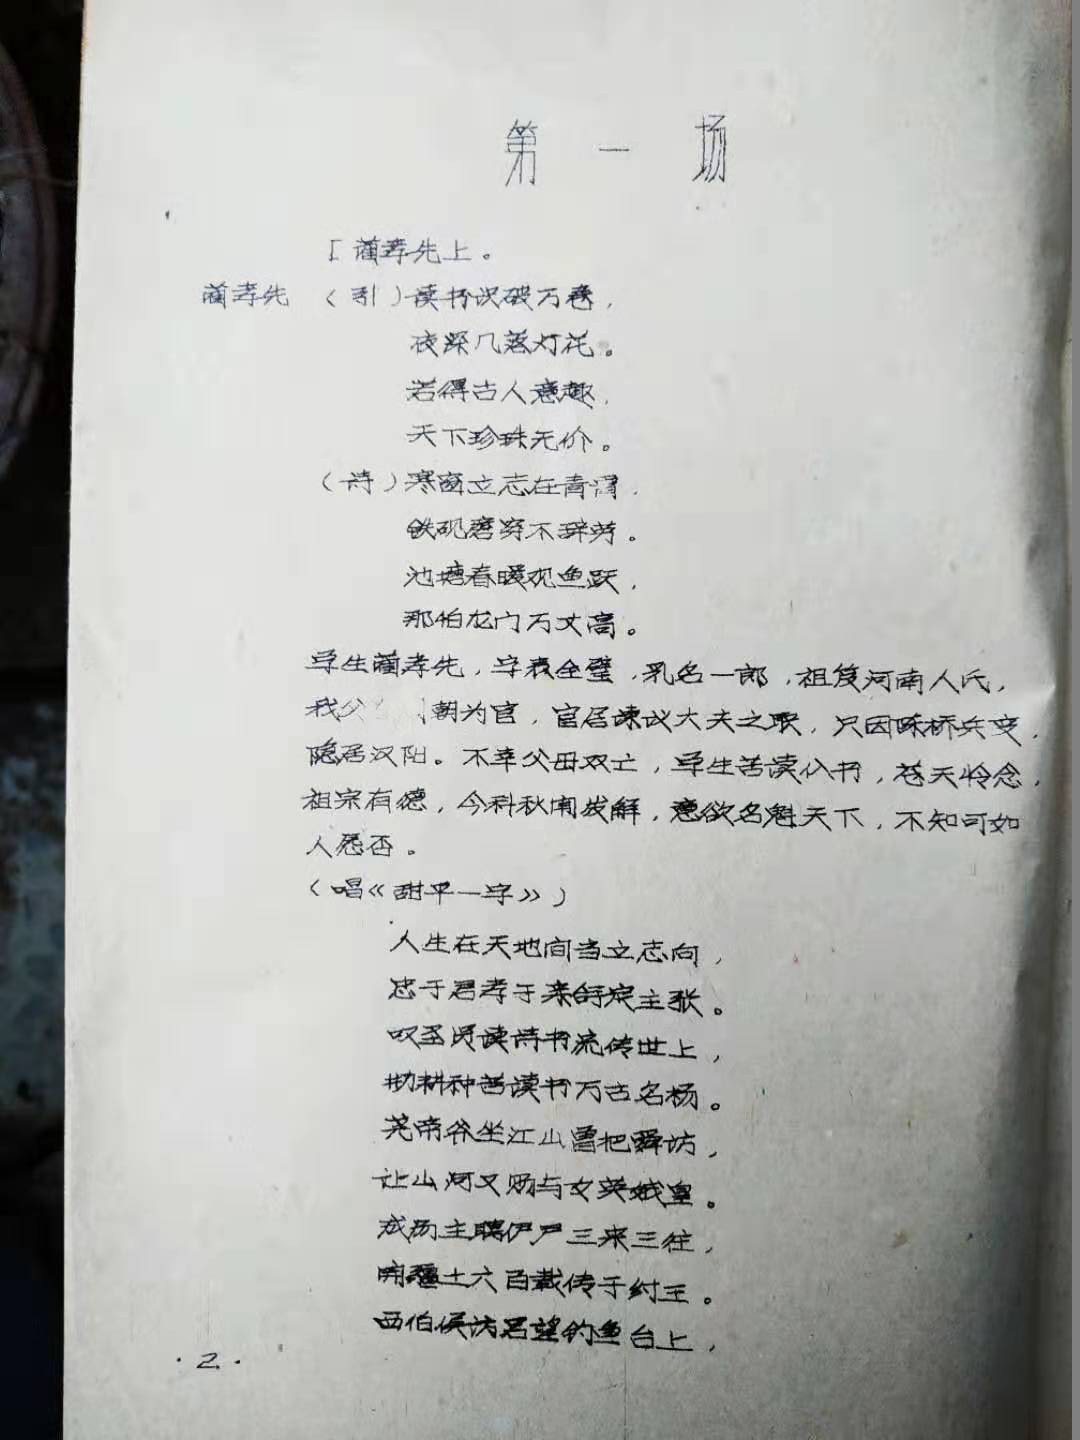 第一场
[蔺孝先上。
蔺孝先 (引)读书识破万卷,
夜深几落灯花。
若得古人意趣,
天下珍珠无价。
(诗)寒窗立志在青霄,
铁砚磨穿不辞劳。
池塘春暖观鱼跃,
那怕龙门万丈高。
学生蔺孝先,字表全璧,乳名一郎,祖笈河南人氏,
我父 朝为官,官居谏议大夫之职,只因陈桥兵变,
隐居汉阳。不幸父母双亡,学生苦读公书,苍天怜念,
祖宗有德,今科秋闱发解,意欲名魁天下,不知可如
人愿否。
(唱《甜平一字》)
人生在天地间当立志向,
忠于君孝于亲舒定主张。
叹圣贤读诗书流传世上,
勤耕种苦读书万古名杨。
尧帝爷坐江山曾把舜访,
让山河又赐与女英娥皇。
成汤主聘伊尹三来三往,
开疆土六百载传于纣王。
西伯侯访吕望钓鱼台上,
·2·